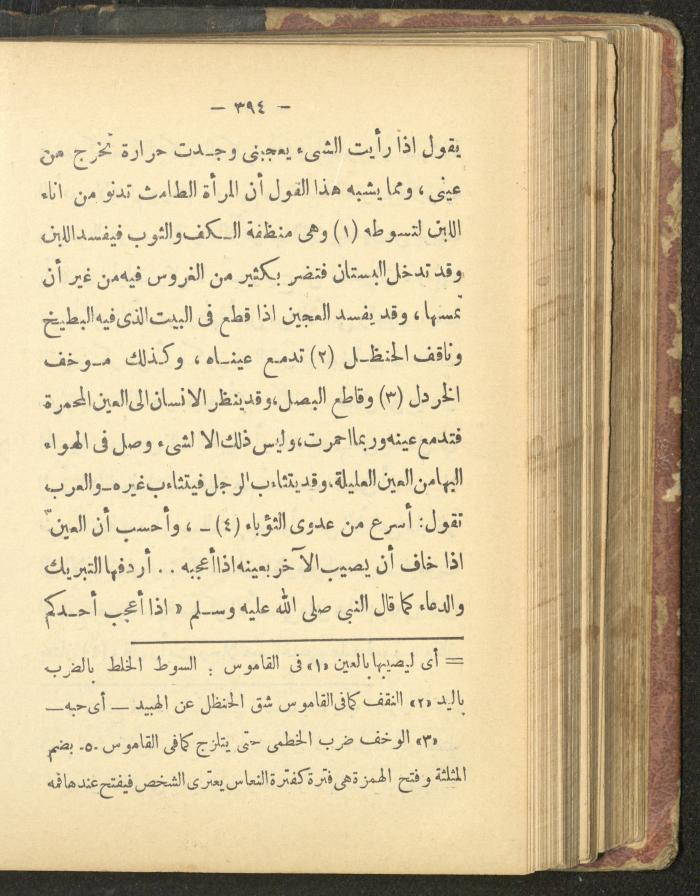 — ٣٩٤ —
يقول اذا رأيت الشىء يعجبنى وجدت حرارة تخرج من
عينى ، ومما يشبه هذا القول أن المرأة الطامث تدنو من اناء
اللبن لتسوطه (١) وهى منظفة الكف والثوب فيفسد اللبن
وقد تدخل البستان فتضر بكثير من الغروس فيه من غير أن
تمسها ، وقد يفسد العجين اذا قطع فى البيت الذى فيه البطيخ
وناقف الحنظل (٢) تدمع عيناه ، وكذلك موخف
الخردل (٣) وقاطع البصل، وقد ينظر الانسان الى العين المحمرة
فتدمع عينه وربما احمرت، وليس ذلك الا لشىء وصل فى الهواء
اليها من العين العليلة، وقد يتثاءب الرجل فيتثاءب غيره - والعرب
تقول: أسرع من عدوى الثؤباء (٤) - ، وأحسب أن العين
اذا خاف أن يصيب الآخر بعينه اذا أعجبه . . أردفها التبريك
والدعاء كما قال النبى صلى الله عليه وسلم « اذا أعجب أحدكم
= أى ليصيبها بالعين «١» فى القاموس : السوط الخلط بالضرب
باليد «٢» النقف كما فى القاموس شق الحنظل عن الهبيد — أى حبه —
«٣» الوخف ضرب الخطمى حتى يتلزج كما فى القاموس .٥. بضم
المثلثة وفتح الهمزة هى فترة كفترة النعاس يعترى الشخص فيفتح عندها فمه